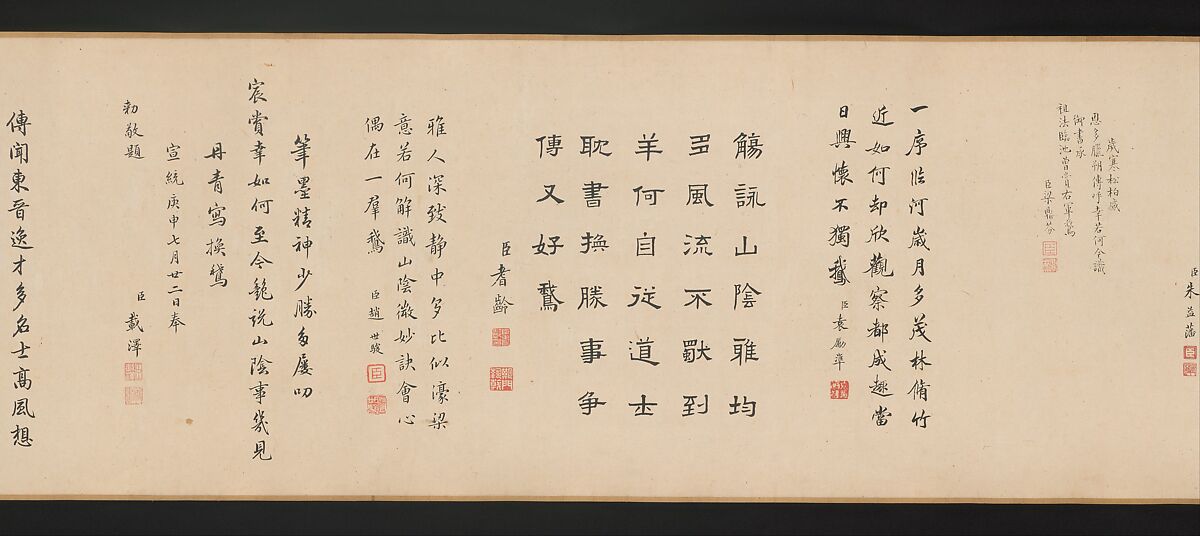 臣朱益藩
歲寒松柏盛
恩多臘朔傳呼幸若何今識
御書承
祖法臨池曾賞右軍鵞
臣梁鼎芬
一序臨河歲月多茂林脩竹
近如何却欣觀察都成趣當
日興懷不獨鵞
臣袁勵準
觴詠山陰雅均
多風流不猒到
羊何自從道士
耽書換勝事爭
傳又好鵞
臣耆齡
雅人深致靜中多比似濠梁
意若何解識山陰微妙訣會心
偶在一羣鵞
臣趙世駿
筆墨精神少勝多屢叨
宸賞幸如何至今艷說山陰事幾見
丹青寫換鵞
宣統庚申七月廿二日奉
勅敬題
臣載澤
傳聞東晉逸才多名士高風想